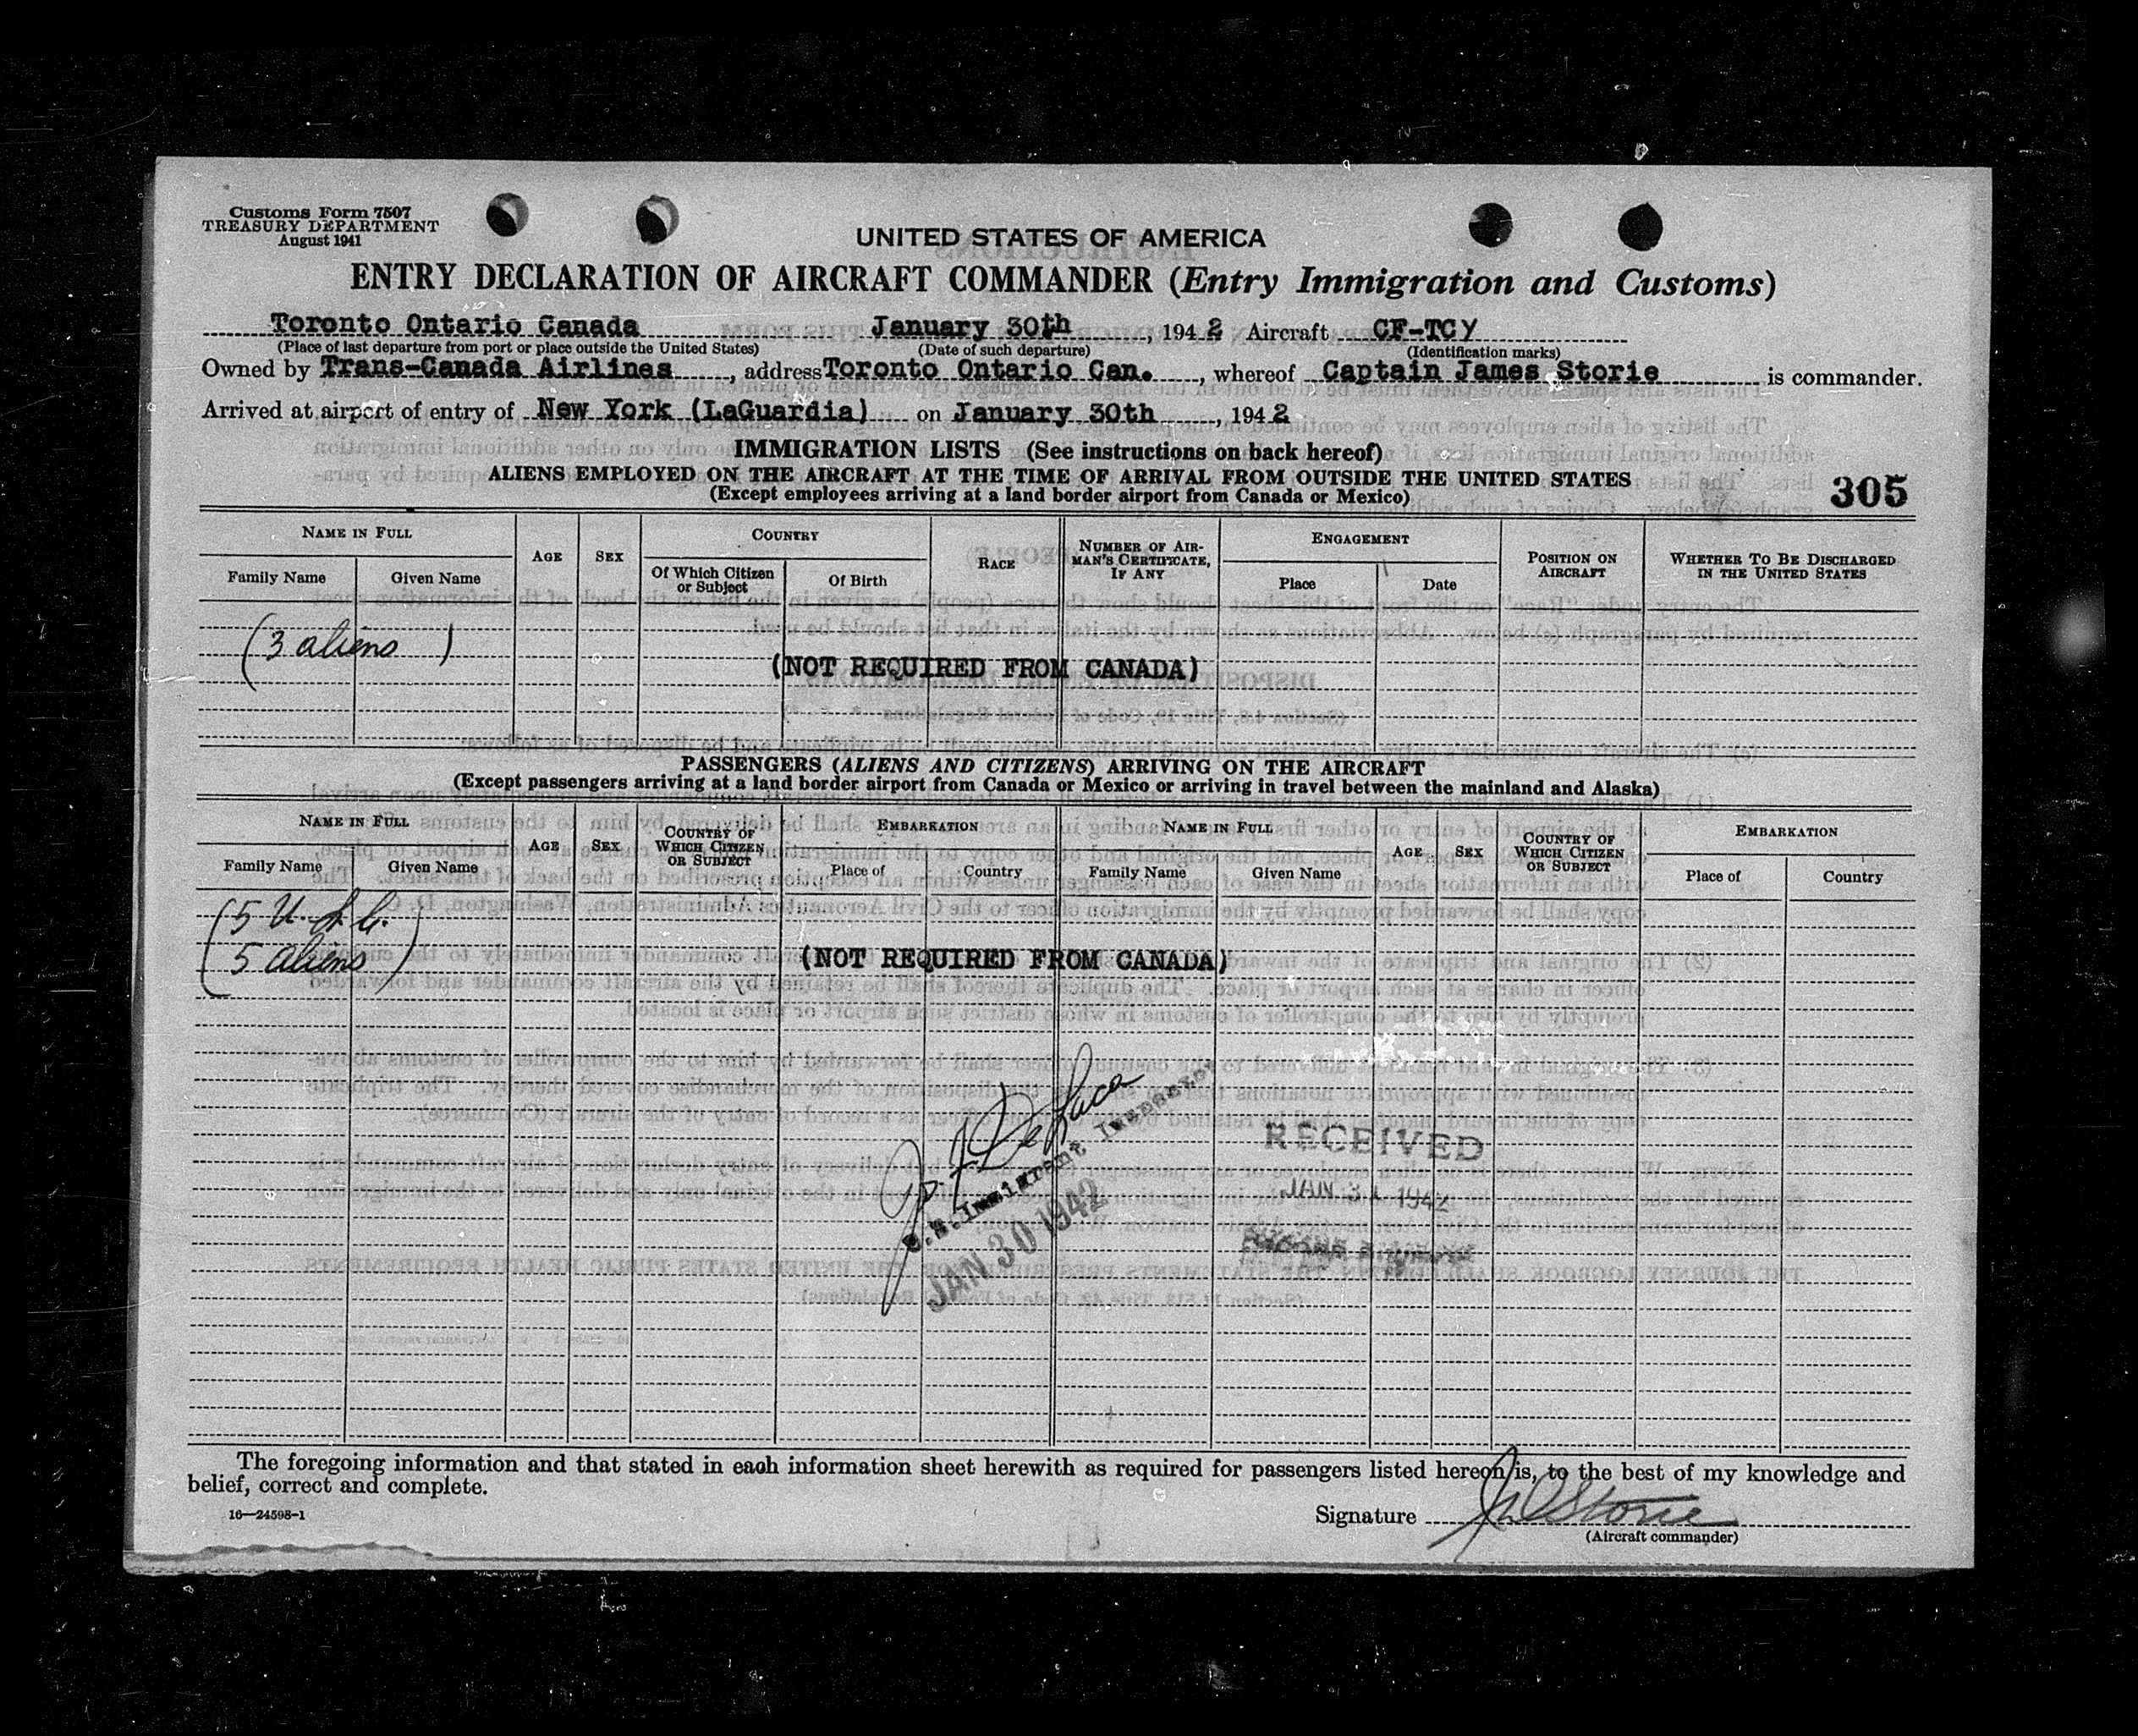 Customs Form 7507
TREASURY DEPARTMENT
August 1941
UNITED STATES OF AMERICA
ENTRY DECLARATION OF AIRCRAFT COMMANDER (Entry Immigration and Customs)
Toronto Ontario Canada January 30th, 1942 Aircraft CF-TCY
(Place of last departure from port or place outside the United States) (Date of such departure) (Identification marks)
Owned by Trans-Canada Airlines, address Toronto Ontario Can., whereof Captain James Storie is commander.
Arrived at airport of entry of New York (LaGuardia) on January 30th, 1942
IMMIGRATION LISTS (See instructions on back hereof)
ALIENS EMPLOYED ON THE AIRCRAFT AT THE TIME OF ARRIVAL FROM OUTSIDE THE UNITED STATES
(Except employees arriving at a land border airport from Canada or Mexico)
305
NAME IN FULL
Family Name Given Name
AGE
SEX
COUNTRY
Of Which Citizen or Subject
Of Birth
RACE
NUMBER OF AIRMAN'S CERTIFICATE, IF ANY
ENGAGEMENT
Place Date
POSITION ON AIRCRAFT
WHETHER TO BE DISCHARGED IN THE UNITED STATES
(3 aliens)
(NOT REQUIRED FROM CANADA)
PASSENGERS (ALIENS AND CITIZENS) ARRIVING ON THE AIRCRAFT
(Except passengers arriving at a land border airport from Canada or Mexico or arriving in travel between the mainland and Alaska)
NAME IN FULL
Family Name Given Name
AGE
SEX
COUNTRY OF WHICH CITIZEN OR SUBJECT
EMBARKATION
Place of Country
NAME IN FULL
Family Name Given Name
AGE
SEX
COUNTRY OF WHICH CITIZEN OR SUBJECT
EMBARKATION
Place of Country
(5 U.S.C.
5 aliens)
(NOT REQUIRED FROM CANADA)
U.S. Immigrant Inspector
JAN 30 1942
RECEIVED
JAN 31 1942
The foregoing information and that stated in each information sheet herewith as required for passengers listed hereon is, to the best of my knowledge and
belief, correct and complete.
16—24598-1
Signature
(Aircraft commander)